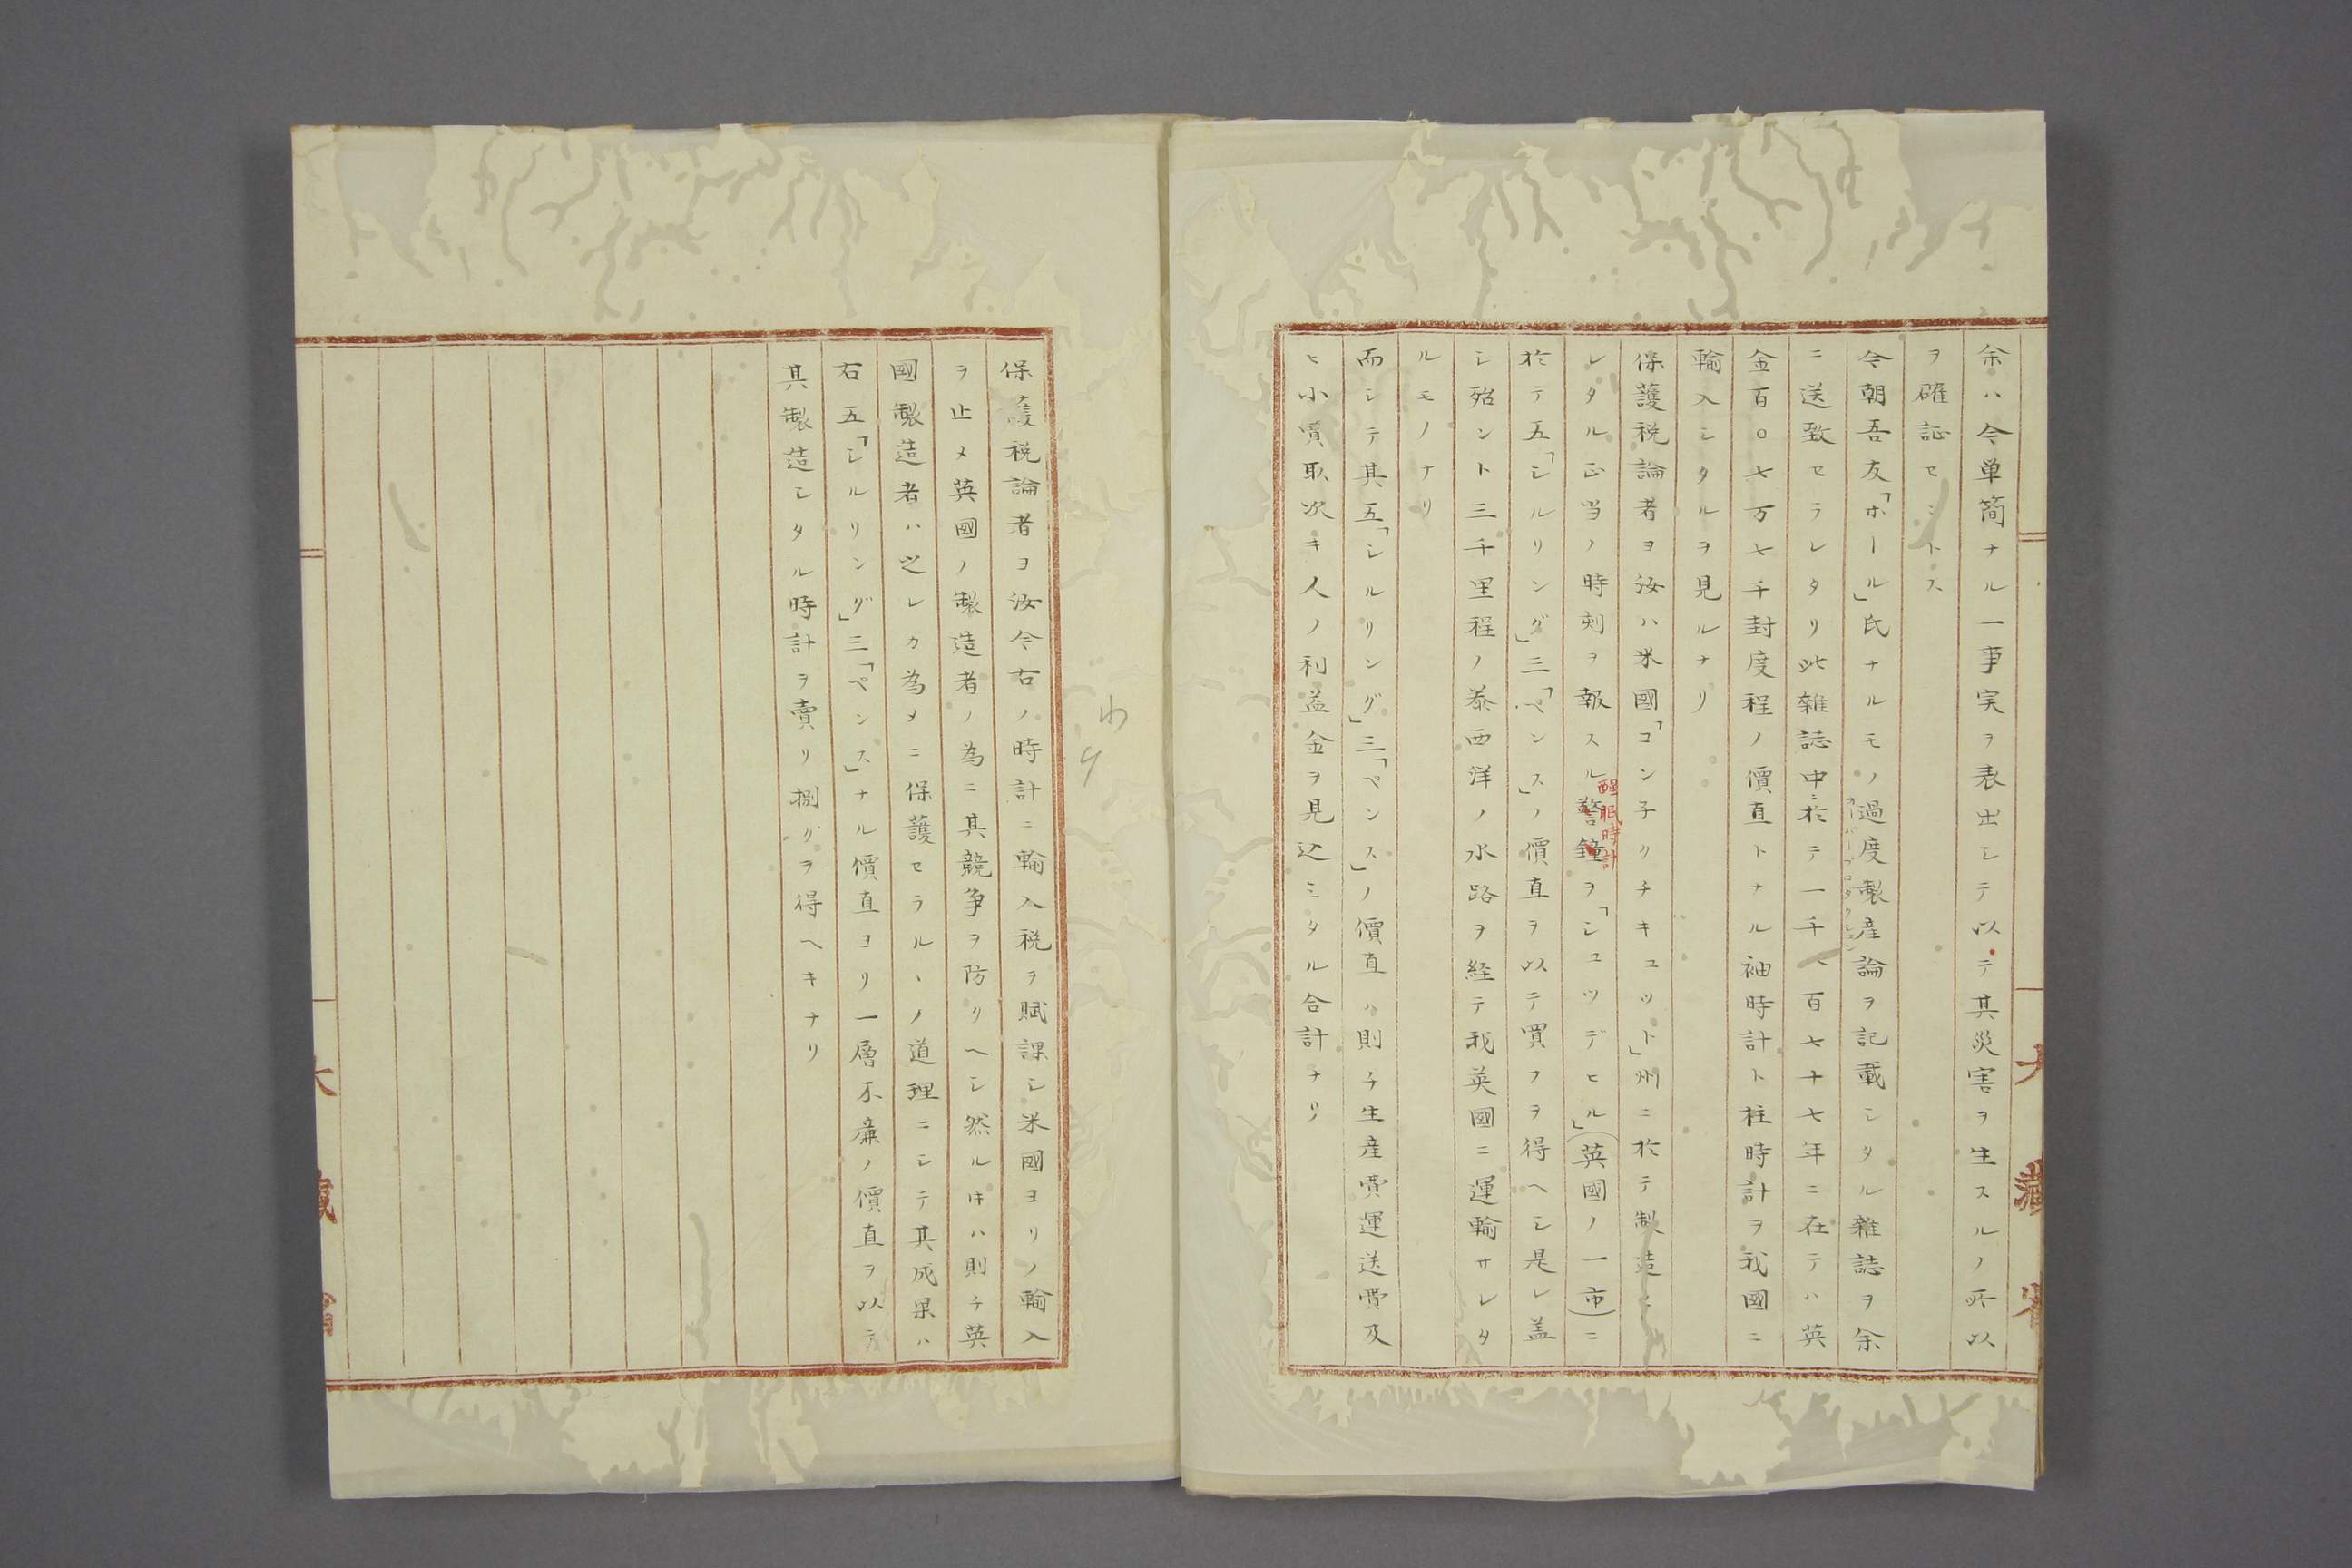 余ハ今単簡ナル一事実ヲ表出シテ以テ其災害ヲ生スルノ所以
ヲ確証セントス
今朝吾友「ホール」氏ナルモノ過度製産論ヲ記載シタル雑誌ヲ余
オーバープロダクション
ニ送致セラレタリ此雑誌中ニ於テ一千八百七十七年ニ在テハ英
金百〇七万七千封度程ノ價直トナル袖時計ト柱時計ヲ我國ニ
輸入シタルヲ見ルナリ
保護税論者ヨ汝ハ米國「コン子クチキユツト」州ニ於テ製造セ
レタル正当ノ時刻ヲ報スル警鐘ヲ「シユツデヒル」(英國ノ一市)ニ
醒眠時計
於テ五「シルリング」三「ペンス」ノ價直ヲ以テ買フヲ得ヘシ是レ盖
シ殆ント三千里程ノ泰西洋ノ水路ヲ経テ我英國ニ運輸サレタ
ルモノナリ
而シテ其五「シルリング」三「ペンス」ノ價直ハ則チ生産費運送費及
ヒ小賣取次キ人ノ利益金ヲ見込ミタル合計ナリ
大藏省
保護税論者ヨ汝今右ノ時計ニ輸入税ヲ賦課シ米國ヨリノ輸入
ヲ止メ英國ノ製造者ノ為ニ其競争ヲ防クヘシ然ルキハ則チ英
國製造者ハ之レカ為メニ保護セラルヽノ道理ニシテ其成果ハ
右五「シルリング」三「ペンス」ナル價直ヨリ一層不廉ノ價直ヲ以テ
其製造シタル時計ヲ賣リ捌クヲ得ヘキナリ
大藏省